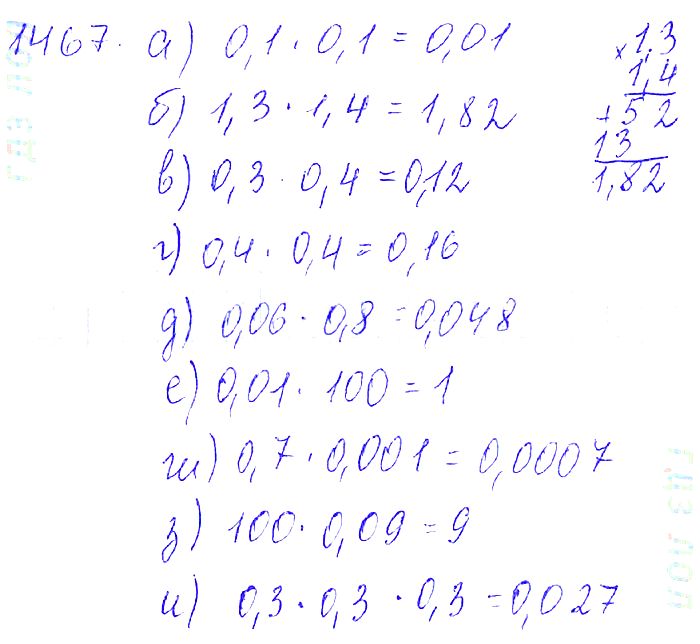 1467. а) 0,1 · 0,1 = 0,01
б) 1,3 · 1,4 = 1,82
в) 0,3 · 0,4 = 0,12
г) 0,4 · 0,4 = 0,16
д) 0,06 · 0,8 = 0,048
е) 0,01 · 100 = 1
ж) 0,7 · 0,001 = 0,0007
з) 100 · 0,09 = 9
и) 0,3 · 0,3 · 0,3 = 0,027
× 1,3
1,4
+ 52
13
1,82